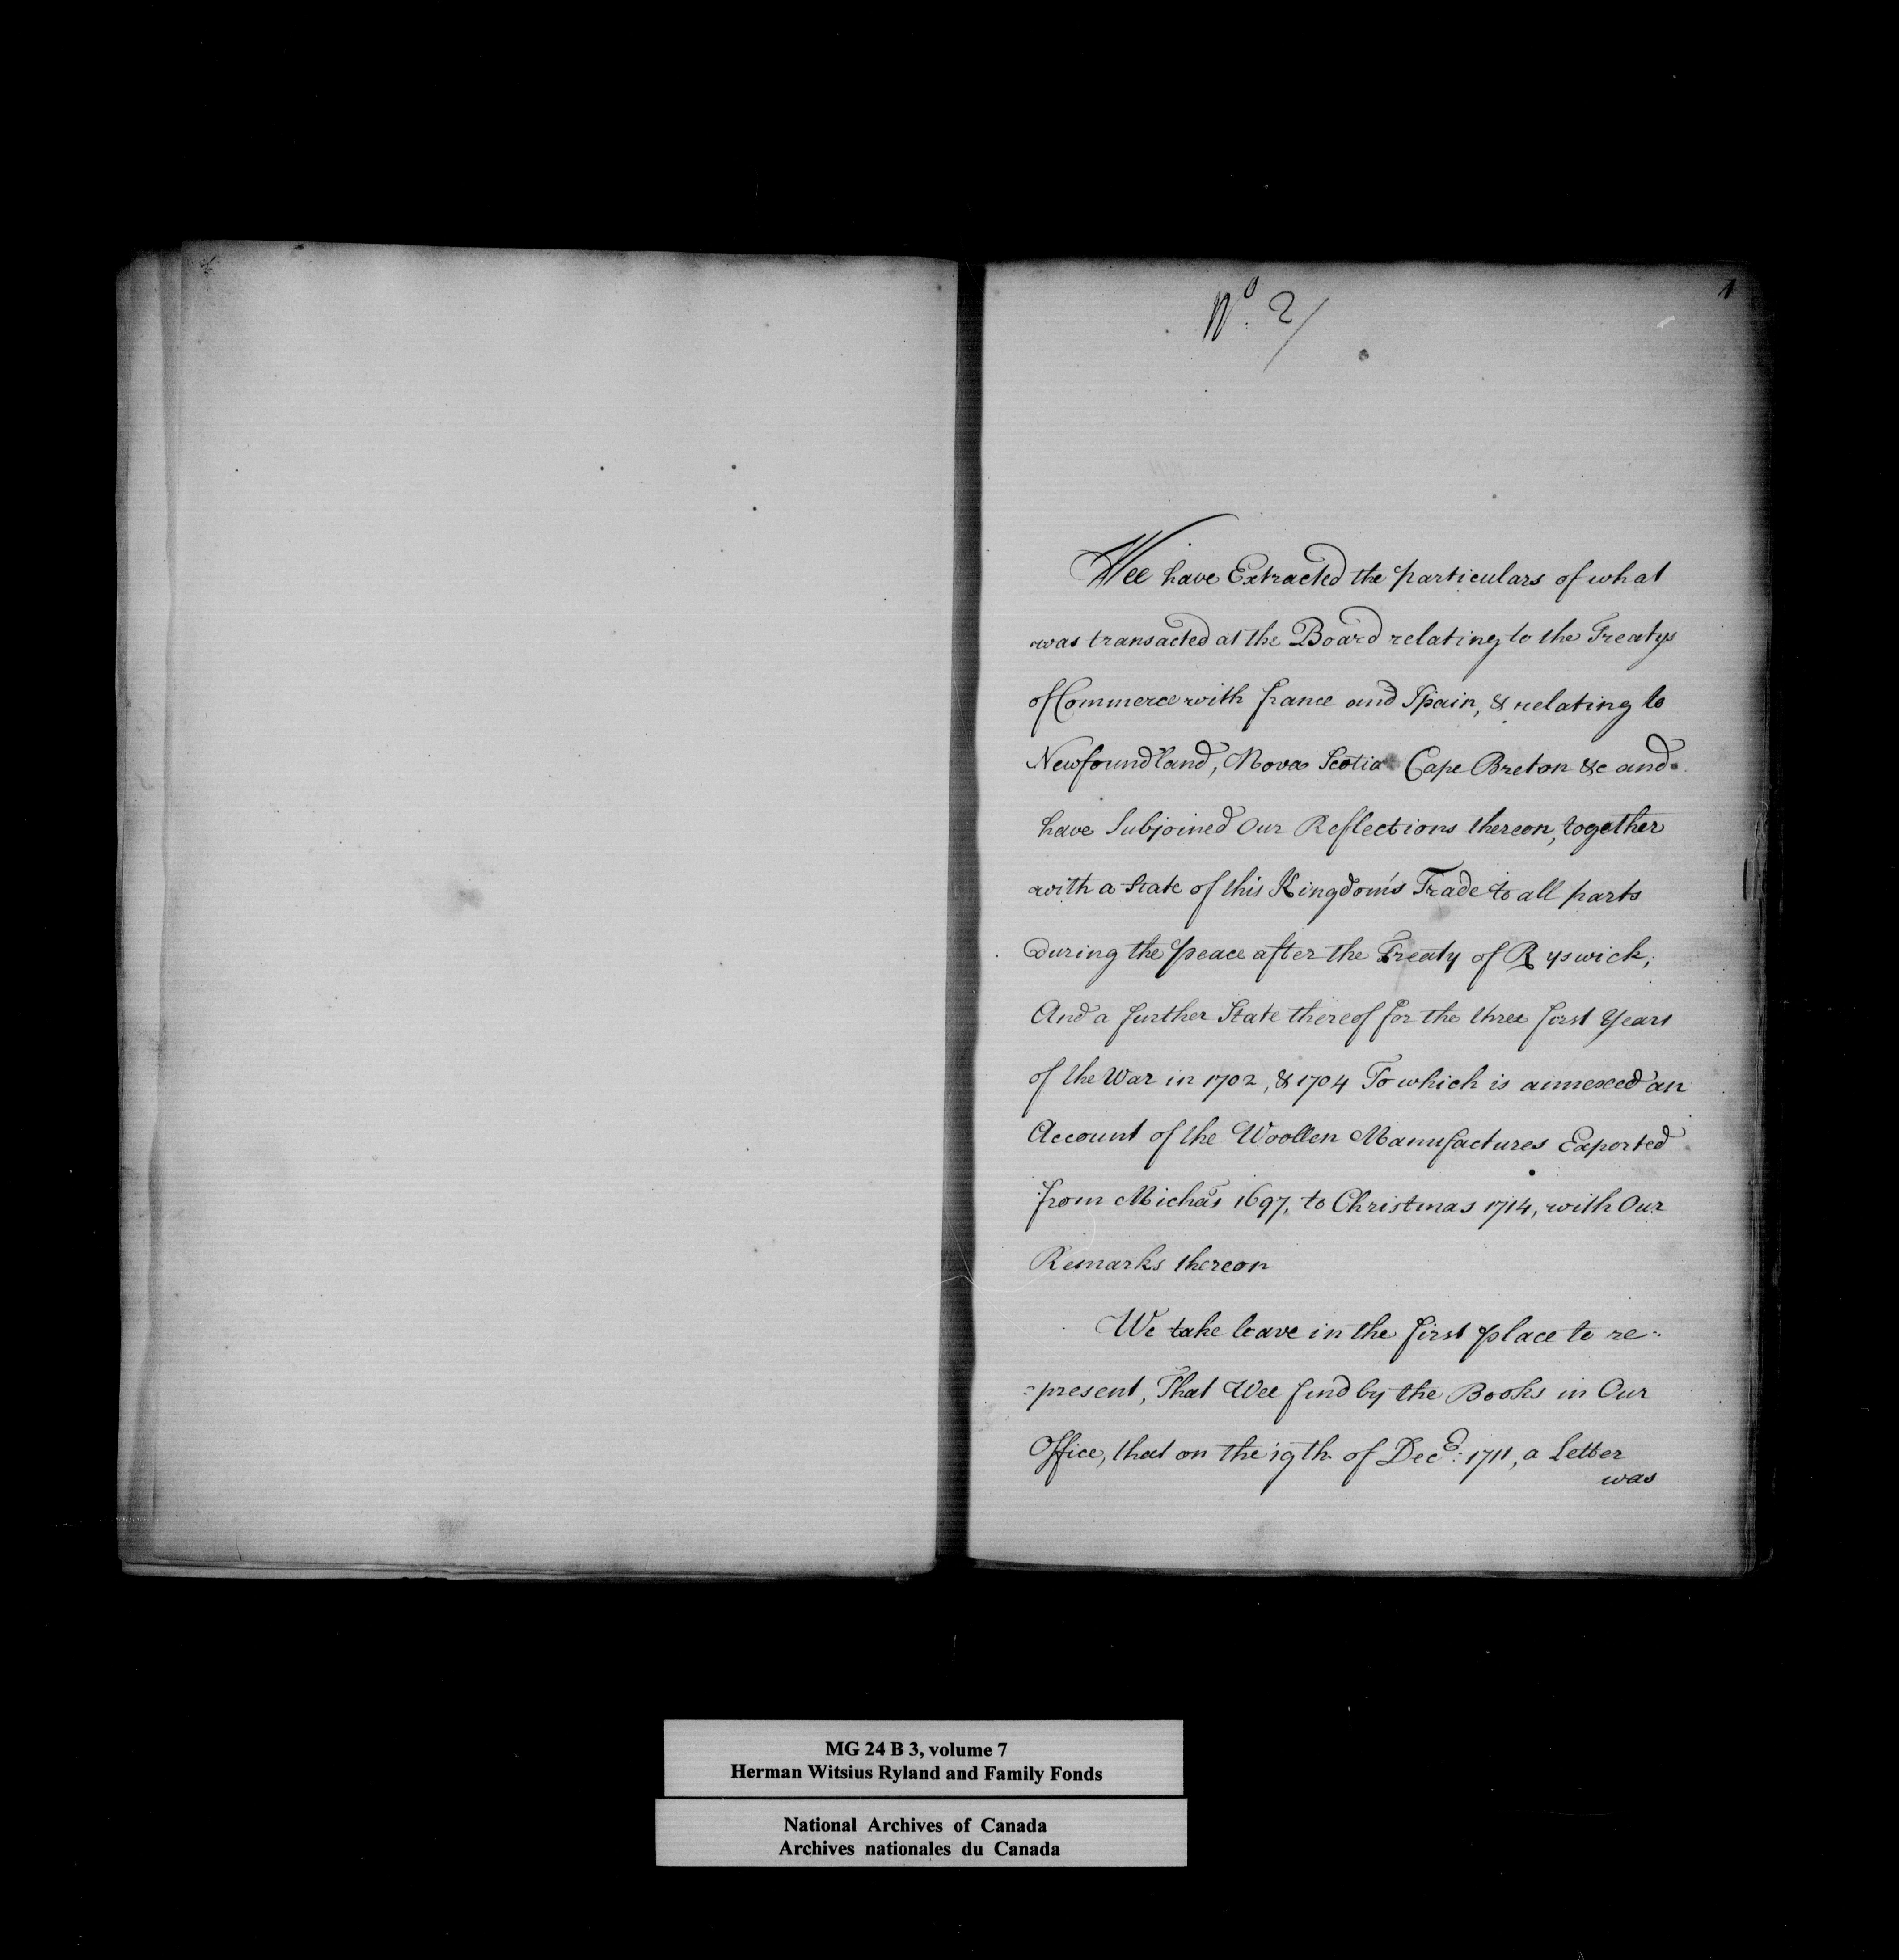 1
No. 2/
Wee have Extracted the particulars of what
was transacted at the Board relating to the Treatys
of Commerce with france and Spain, & relating to
Newfoundland, Nova Scotia Cape Breton &c and
have Subjoined Our Reflections thereon, together
with a State of this Kingdom's Trade to all parts
during the peace after the Treaty of Ryswick,
And a further State thereof for the three first Years
of the War in 1702, & 1704 To which is annexed an
Account of the Woollen Manufactures Exported
from Micha's 1697, to Christmas 1714, with Our
Remarks thereon
We take leave in the first place to re-
=present, That Wee find by the Books in Our
Office, that on the 19th. of Decr: 1711, a Letter
was
MG 24 B 3, volume 7
Herman Witsius Ryland and Family Fonds
National Archives of Canada
Archives nationales du Canada